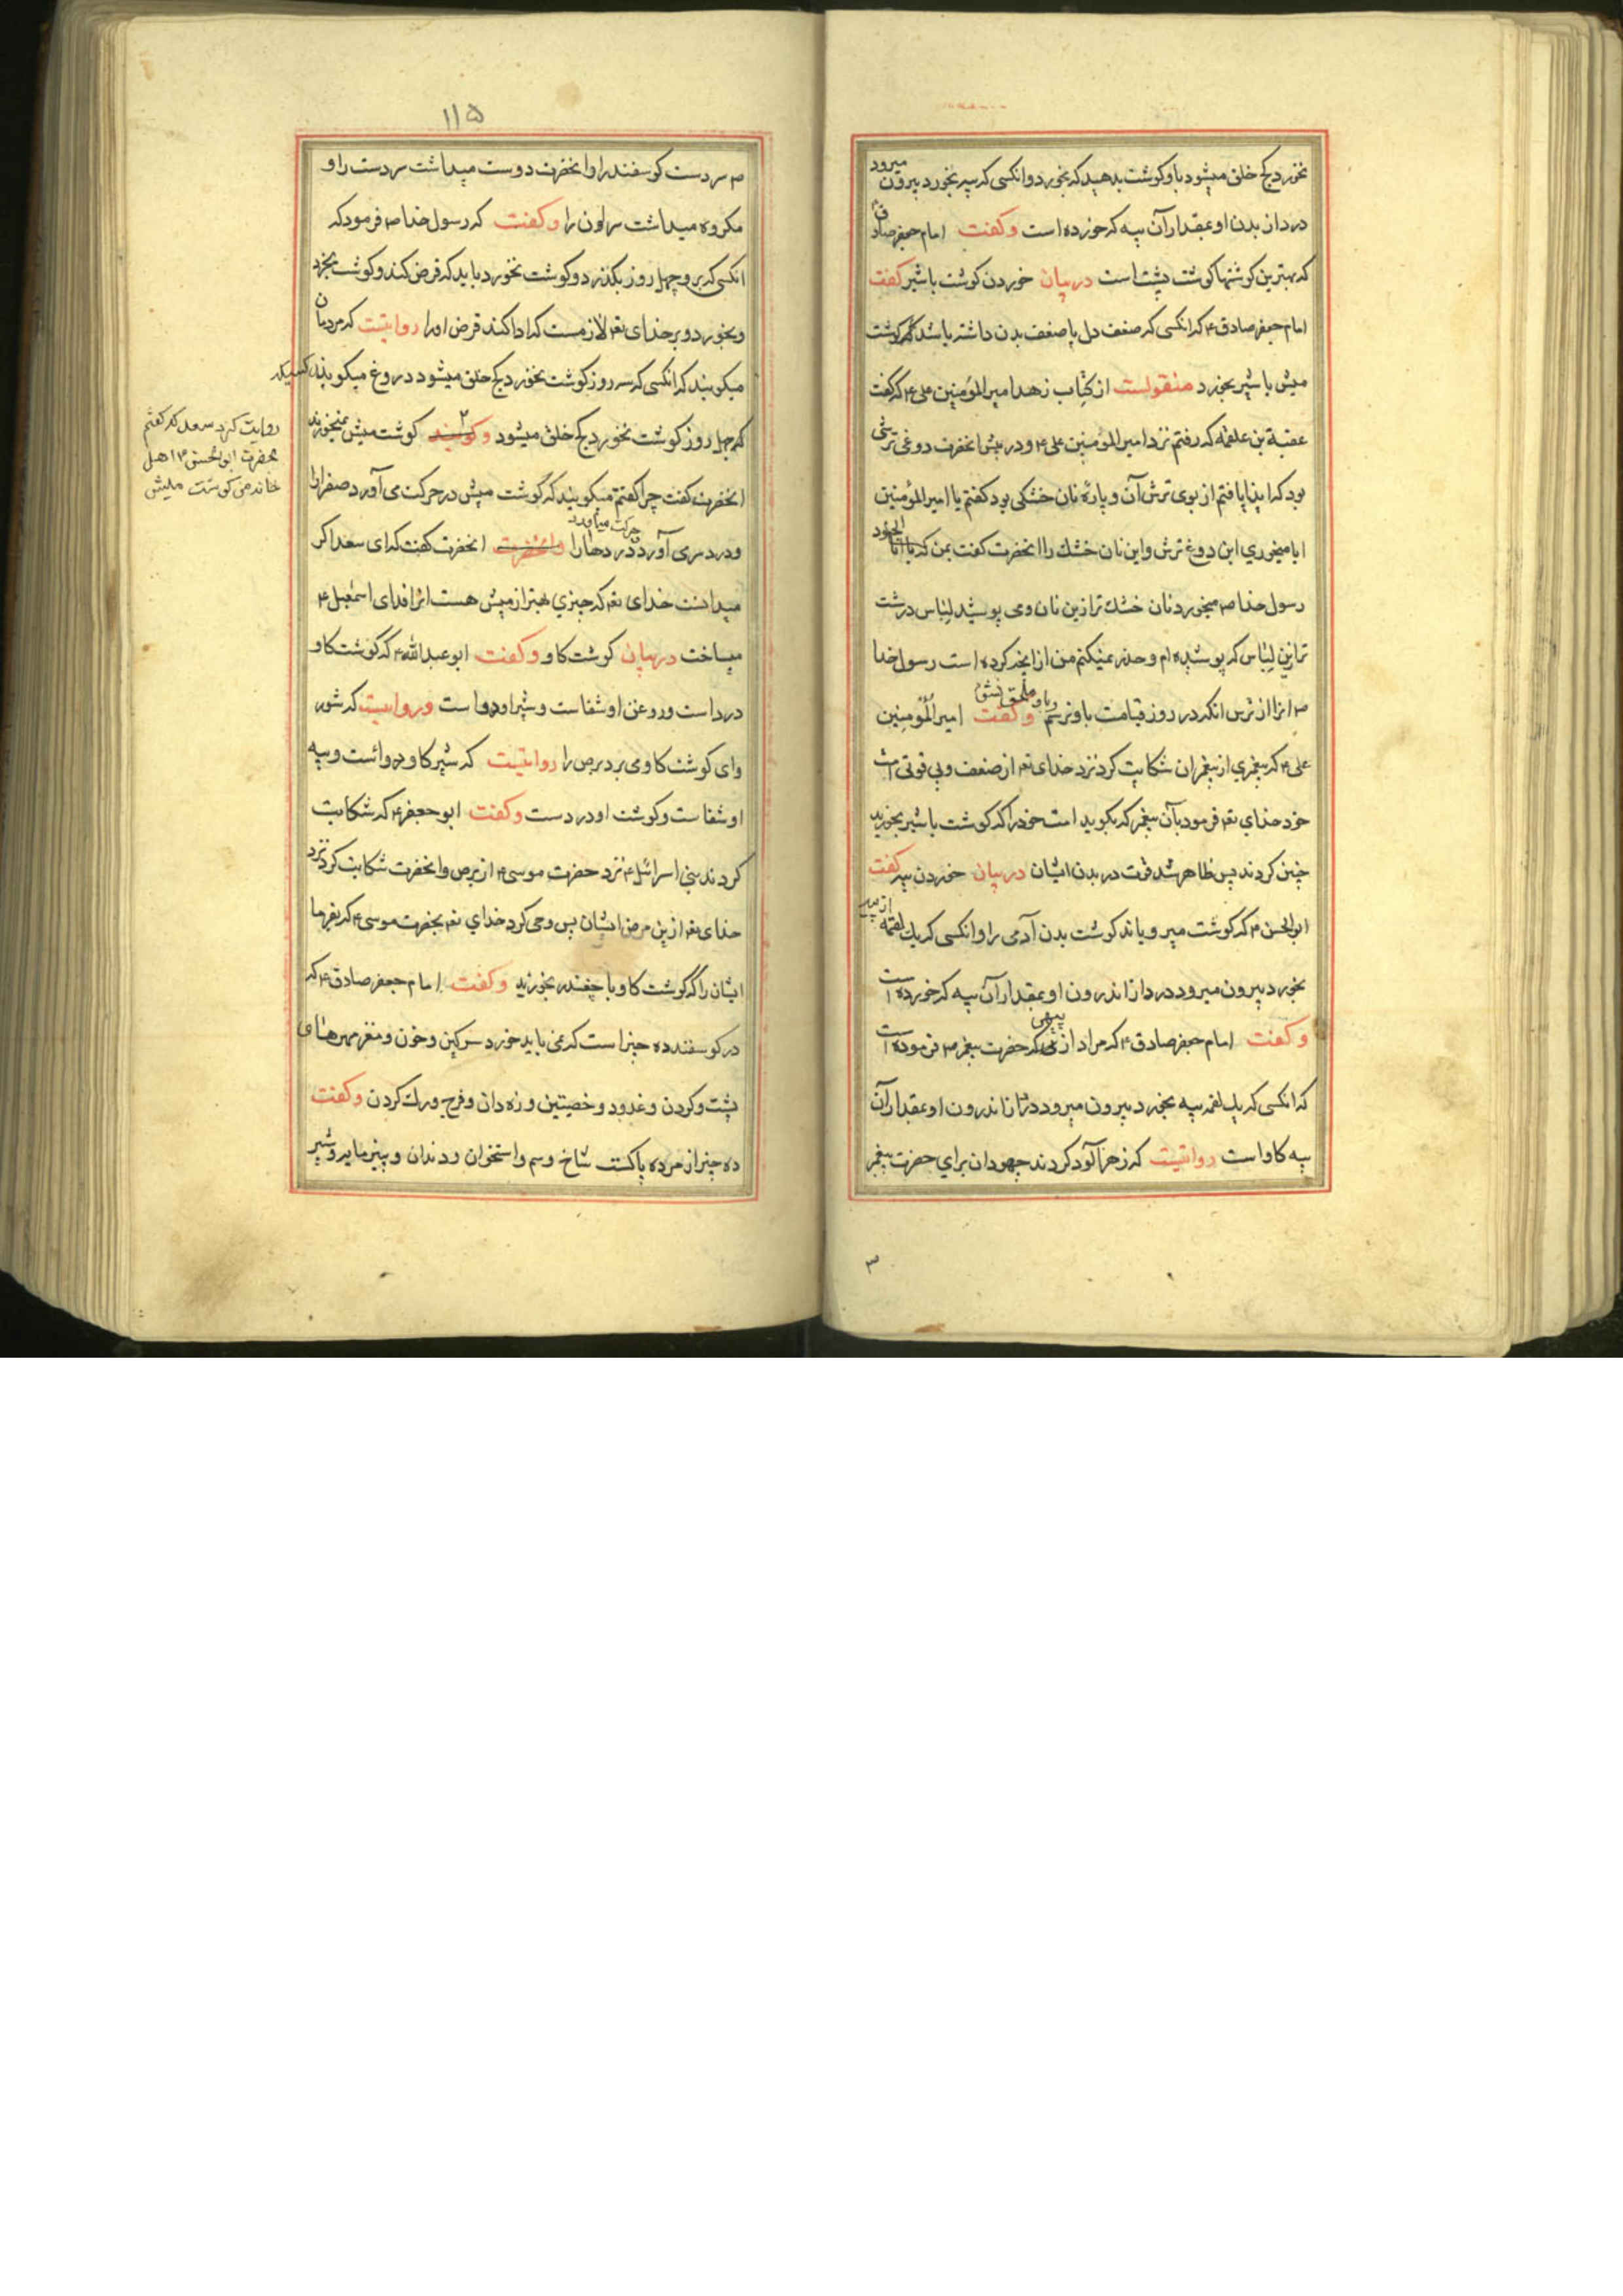 نخورد کج خلق میشود باو گوشت بدهید که بخورد وانکسی که پیه بخورد بیرون میرود
درد از بدن او بمقدار آن پیه که خورده است وکفت امام جعفر صادق
که بهترین کوشتها کوشت پشت است دربیان خوردن کوشت باشیر کفت
امام جعفر صادق ۴ که انکسی که ضعف دل یا ضعف بدن داشته باشد که کوشت
میش باشیر بخورد منقولست از کتاب زهد امیر المؤمنین علی ۴ که کفت
عقبة بن علقمه که رفتم نزد امیر المؤمنین علی ۴ و در پیش انحضرت دوغی ترشی
بود که ایذا یافتم از بوی ترش آن و پارهٔ نان خشکی بود کفتم یا امیر المؤمنین
ایا میخوری این دوغ ترش واین نان خشک را انحضرت کفت بمن که یا ابا الجنود
رسول خدا ص میخورد نان خشک تر ازین نان ومی پوشید لباس درشت
تر ازین لباس که پوشیده ام وحذر نمیکنم من از انچه کرده است رسول خدا
ص انرا از ترس انکه در روز قیامت باو نرسم وملحق نشوم وکفت امیر المؤمنین
علی ۴ که پیغمبری از پیغمبران شکایت کرد نزد خدای تعه از ضعف وبی قوتی امت
خود خدای تعه فرمود بآن پیغمبر که بکوید امت خود را که کوشت باشیر بخورید
چنین کردند پس ظاهر شد قوت در بدن ایشان دربیان خوردن پیه کفت
ابو الحسن ۴ که کوشت میرویاند کوشت بدن آدمی را وانکسی که یک لقمه از پیه
بخورد بیرون میرود درد از اندرون او بمقدار آن پیه که خورده است
وکفت امام جعفر صادق ۴ که مراد از پیهی که حضرت پیغمبر ص فرموده است
که انکسی که یک لقمه پیه بخورد بیرون میرود درد از اندرون او بمقدار آن
پیه کاو است روایتیست که زهر آلود کردند جهودان برای حضرت پیغمبر
۳
۱۱۵
ص سردست کوسفند را وانحضرت دوست میداشت سردست را و
مکروه میداشت سراون را وکفت که رسول خدا ص فرمود که
انکسی که برو چهل روز بکذرد وکوشت نخورد باید که قرض کند وکوشت بخرد
وبخورد وبر خدای تعه لازمست که ادا کند قرض اورا روایتیست که مردمان
میکویند که انکسی که سه روز کوشت نخورد کج خلق میشود دروغ میکویند کسیکه
که چهل روز کوشت نخورد کج خلق میشود وکویند کوشت میش نمیخورند
روایت کرد سعد که کفتم
بحضرت ابو الحسن ۴ اهل
خانه من کوشت میش
انحضرت کفت چرا کفتم میکویند که کوشت میش در حرکت می آورد صفرا را
ودرد سری آورد ودردها را حرکت میآورد وانحضرت انحضرت کفت که ای سعد اکر
میدانست خدای تعه که چیزی بهتر از میش هست انرا فدای اسمعیل ۴
میساخت دربیان کوشت کاو وکفت ابو عبدالله ۴ که کوشت کاو
درد است وروغن او شفاست وشیر او دواست وروایتیست که شور
وای کوشت کاو می برد برص را روایتیست که شیر کاو دوائست وپیه
او شفاست وکوشت او درد ست وکفت ابو جعفر ۴ که شکایت
کردند بنی اسرائیل ۴ نزد حضرت موسی ۴ از برص وانحضرت شکایت کرد نزد
خدای تعه ازین مرض ایشان پس وحی کرد خدای تعه بحضرت موسی ۴ که بفرما
ایشان را که کوشت کاو با چغندر بخورند وکفت امام جعفر صادق ۴ که
در کوسفند ده چیز است که نمی باید خورد سرکین وخون ومغز مهرهای
پشت وکردن وغدود وخصیتین وزه دان وفرج ورک کردن وکفت
ده چیز از مرده پاکست شاخ وسم واستخوان ودندان وپنیر مایه وشیر